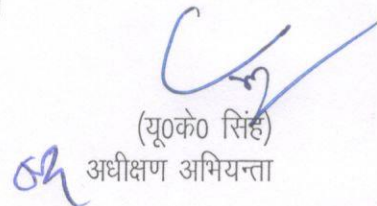 (यू0के0 सिंह)
अधीक्षण अभियन्ता